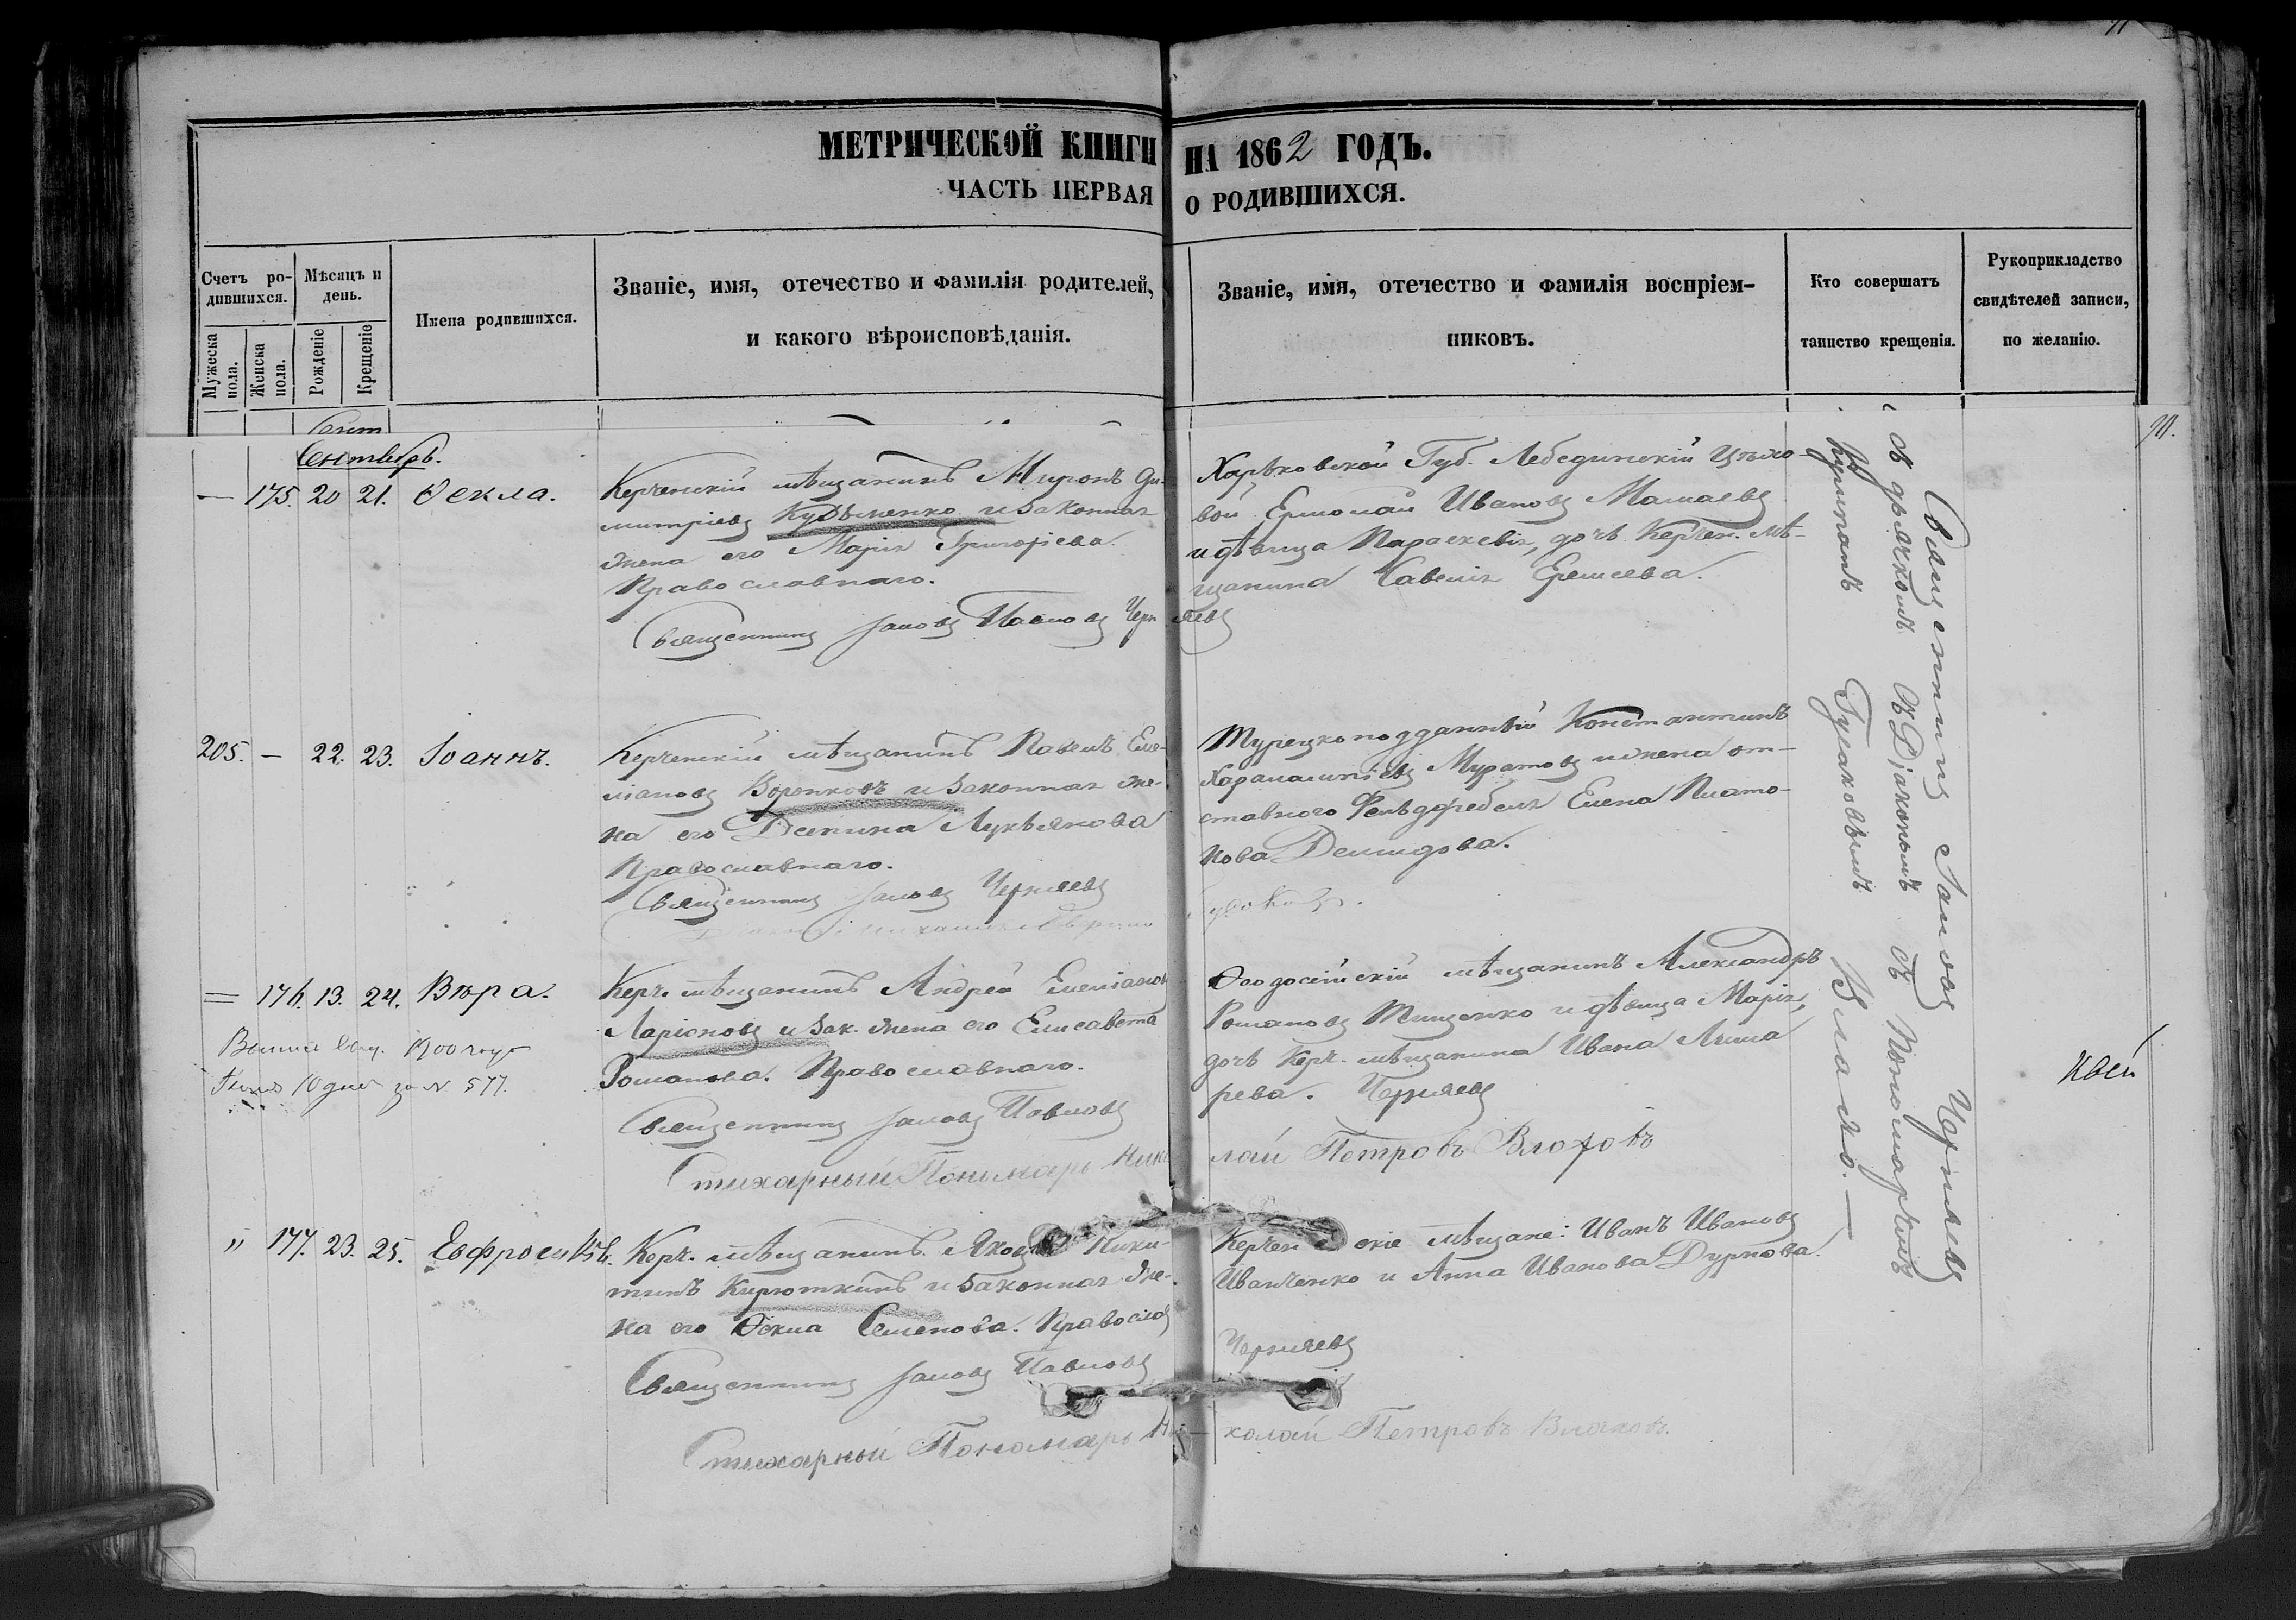 МЕТРИЧЕСКОЙ КНИГИ НА 1862 ГОДЪ.
ЧАСТЬ ПЕРВАЯ О РОДИВШИХСЯ.
Счетъ ро-
дившихся.
Мужеска пола.
Женска пола.
Мѣсяцъ и
день.
Рожденіе
Крещеніе
Имена родившихся.
Званіе, имя, отечество и фамилія родителей,
и какого вѣроисповѣданія.
Званіе, имя, отечество и фамилія воспріем-
никовъ.
Кто совершатъ
таинство крещенія.
Рукоприкладство
свидѣтелей записи,
по желанію.
Сентябрь.
— 175. 20 21. Ѳекла.
Керченскій мѣщанинъ Миронъ Ди-
митріевъ Кудѣменко и законная
жена его Марія Григорьева.
Православнаго.
Священникъ Іаковъ Павловъ Черняевъ
Харьковской Губ. Лебединскій Цехо-
вой Ермолай Ивановъ Мамаевъ
и дѣвица Параскевія, дочь Керчен. мѣ-
щанина Савелія Еремеева.
205. — 22. 23. Іоаннъ.
Керченскій мѣщанинъ Павелъ Еме-
ліановъ Воронковъ и законная же-
на его Лукьянова
Православнаго.
Священникъ Іаковъ Черняевъ
Турецкоподданный Константинъ
Харалампіевъ Муратовъ и жена от-
ставного Фельдфебеля Елена Плато-
нова Демидова.
= 176. 13. 24. Вѣра.
1900 года
за № 577.
Керч. мѣщанинъ Андрей Емеліановъ
Ларіоновъ и зак. жена его Елисавета
Романова. Православнаго.
Священникъ Іаковъ Павловъ Черняевъ
Стихарный Пономарь Николай Петровъ Влаховъ
Ѳеодосійскій мѣщанинъ Александръ
Романовъ Тищенко и дѣвица Марія,
дочь Керч. мѣщанина Ивана
рева.
" 177. 23. 25. Евфросинія.
Керч. мѣщанинъ Яковъ Ники-
тинъ Кирюткинъ и законная же-
на его Ѳекла Семенова. Православ
Священникъ Іаковъ Павловъ Черняевъ
Стихарный Пономарь Николай Петровъ Влаховъ.
Керченскіе мѣщане: Иванъ Ивановъ
Иванченко и Анна Иванова Дурнова.
Священникъ Іаковъ Черняевъ
съ дьячкомъ съ Діакономъ съ Пономаремъ
Гусаковымъ